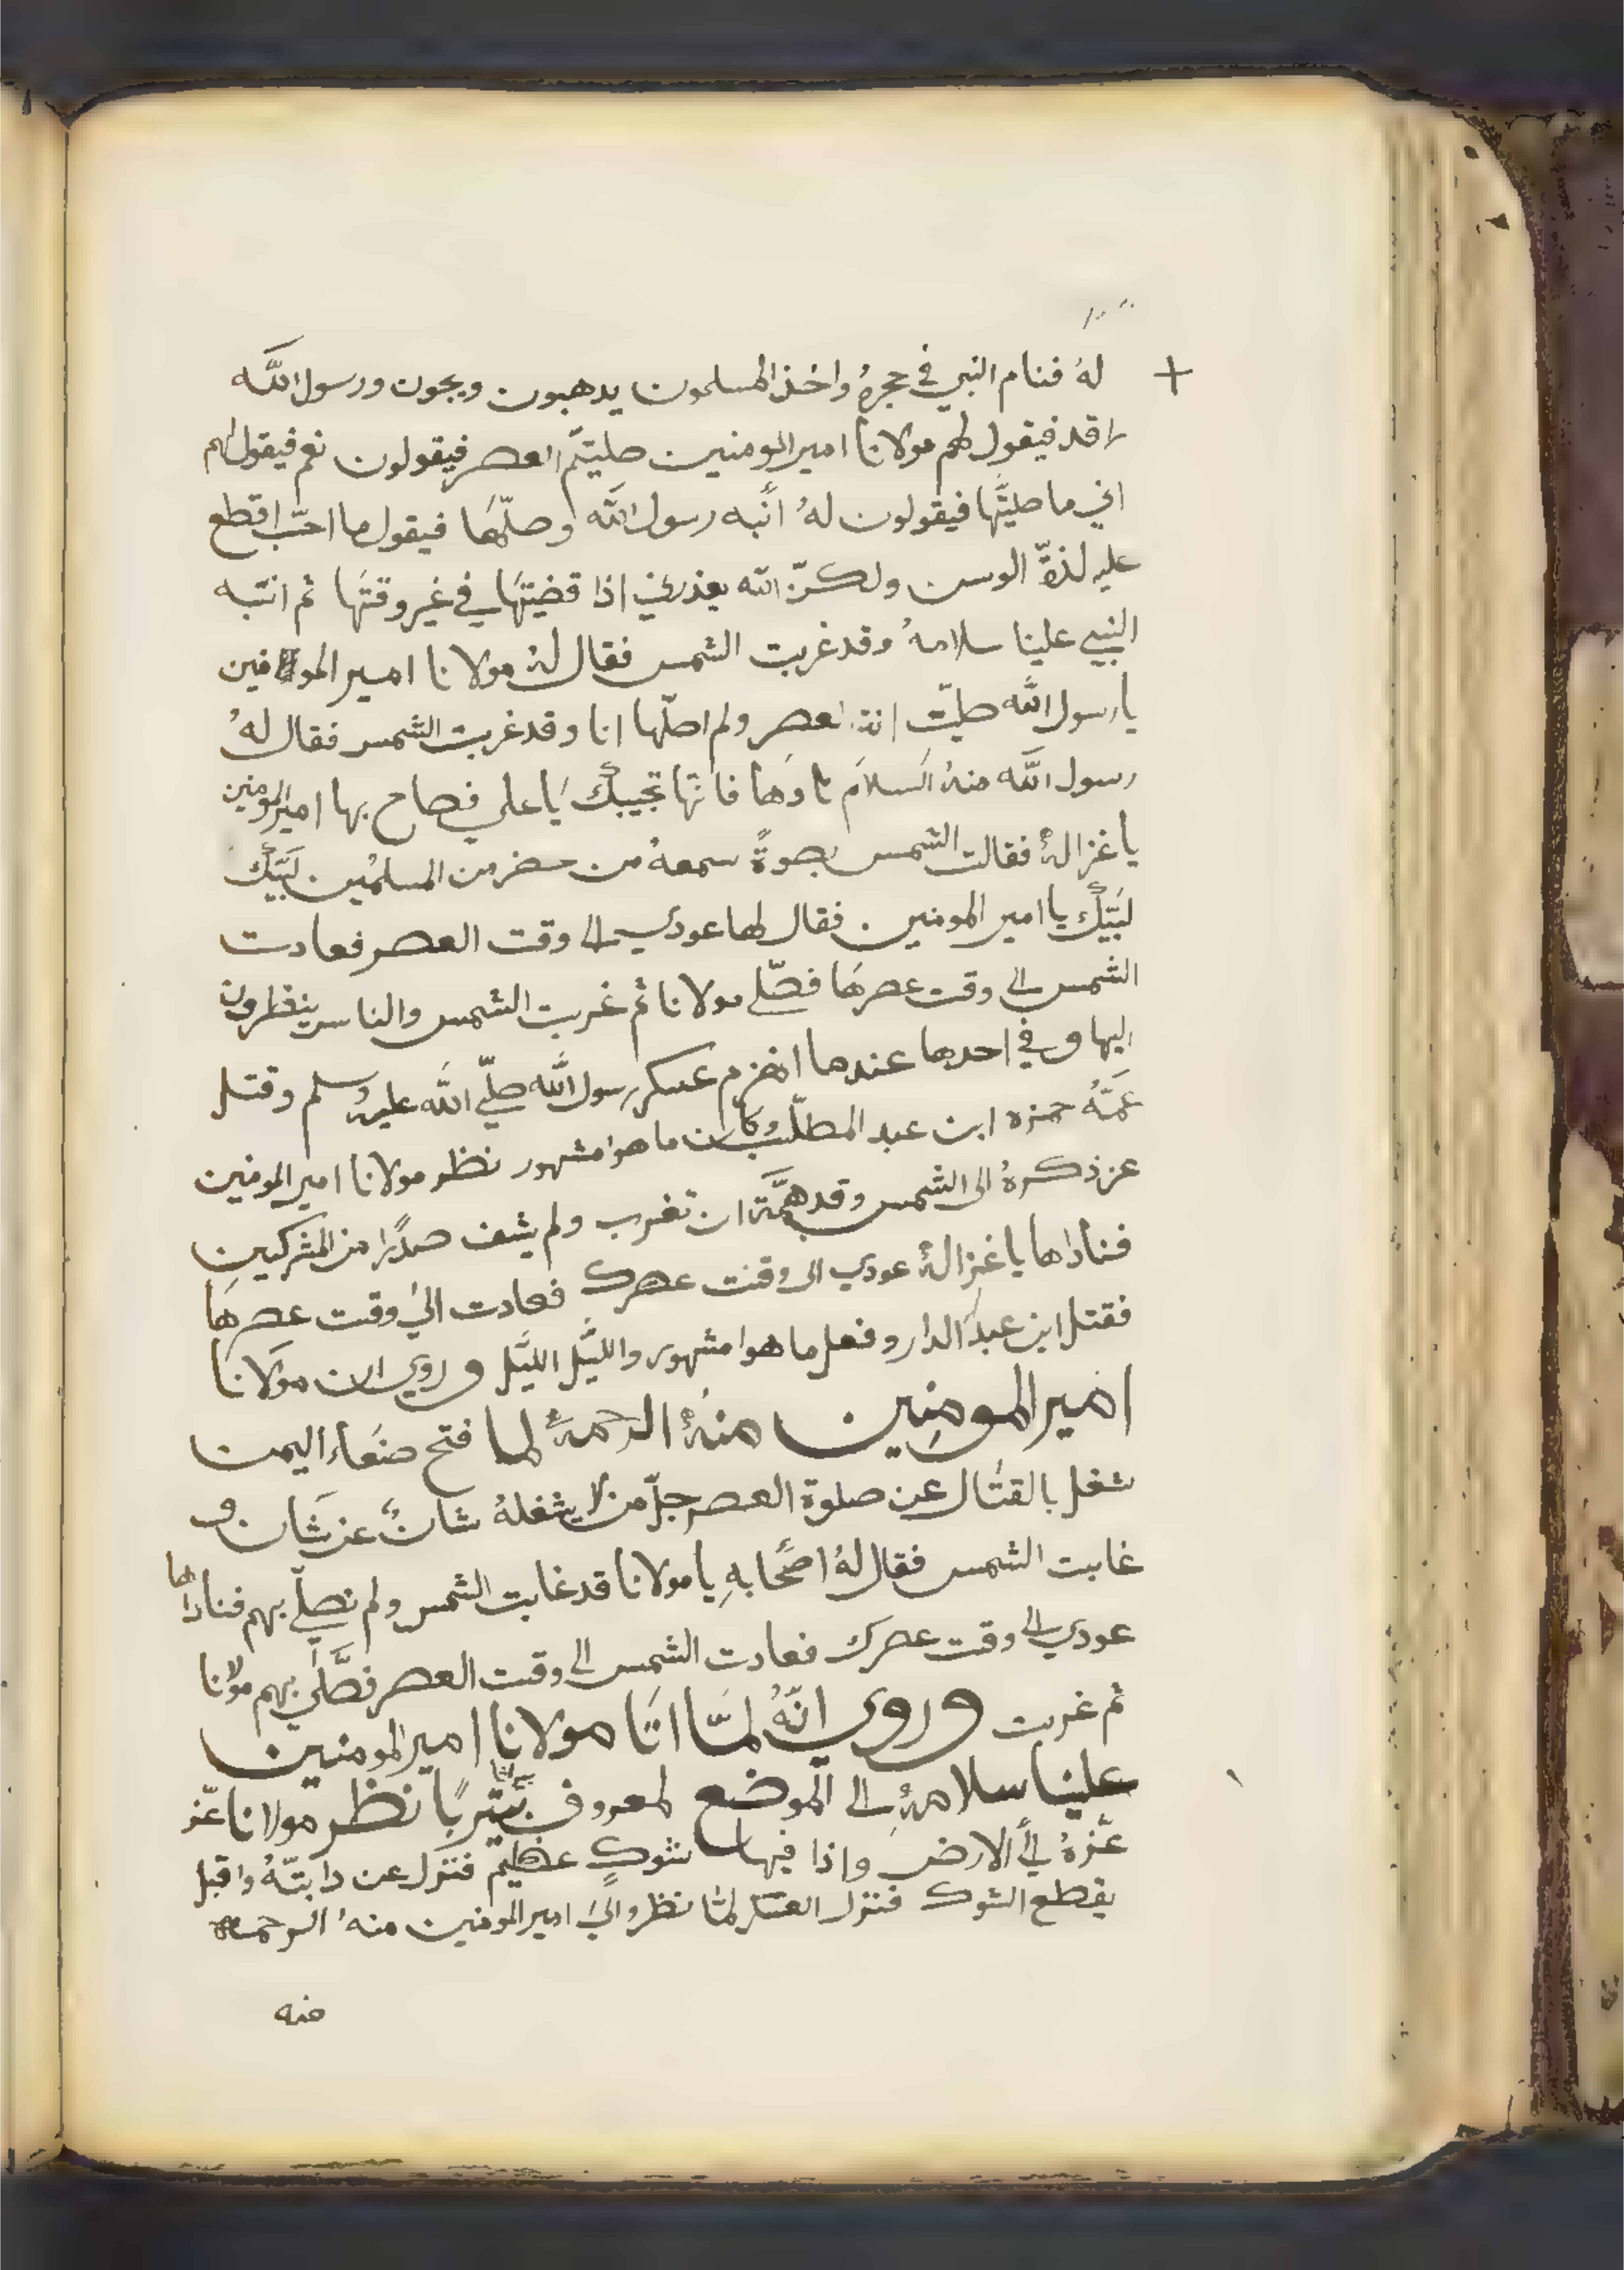 له فنام النبي في حجره واخذ المسلمون يدهبون ويجون ورسول الله
راقد فيقول لهم مولانا امير المومنين صليتم العصر فيقولون نعم فيقول لهم
اني ما صليتها فيقولون له أنبه رسول الله وصلّها فيقول ما احبّ اقطع
عليه لذة الوسن ولكنّ الله يعذرني اذا قضيتها في غير وقتها ثم انتبه
النبي علينا سلامه وقد غربت الشمس فقال له مولانا امير المومنين
يا رسول الله صليّت انت العصر ولم اصلّها انا وقد غربت الشمس فقال له
رسول الله منه السلام نادها فانها تجيبك يا علي فصاح بها امير المومنين
يا غزالة فقالت الشمس بصوة سمعه من حضر من المسلمين لبّيك
لبّيك يا امير المومنين فقال لها عودي الى وقت العصر فعادت
الشمس الى وقت عصرها فصلّى مولانا ثم غربت الشمس والناس ينظرون
اليها وفي احدها عندما انهزم عسكر رسول الله صلّي الله عليه وسلم وقتل
عمّه حمزه ابن عبد المطلب وكان ما هوا مشهور نظر مولانا امير المومنين
عز ذكره الى الشمس وقد همّة ان تغرب ولم يشف صدرًا من المشركين
فناداها يا غزالة عودي الى وقت عصرك فعادت الي وقت عصرها
فقتل ابن عبد الدار وفعل ما هوا مشهور والليّل الليّل وروي ان مولانا
امير المومنين منه الرحمة لما فتح صنعاء اليمن
شغل بالقتال عن صلوة العصر جلّ من لا يشغله شان عن شان و
غابت الشمس فقال له اصحابه يا مولانا قد غابت الشمس ولم نصلّي بهم فناداها
عودي الى وقت عصرك فعادت الشمس الى وقت العصر فصّلّى بهم مولانا
ثم غربت وروي انّه لمّا اتا مولانا امير المومنين
علينا سلامه الى الموضع لمعروف نظر مولانا عزّ
عزّه الى الارض واذا فيها شوك عظيم فنزل عن دابتّه واقبل
يقطع الشوك فنزل العسكر لمّا نظروا الى امير المومنين منه الرحمه
منه